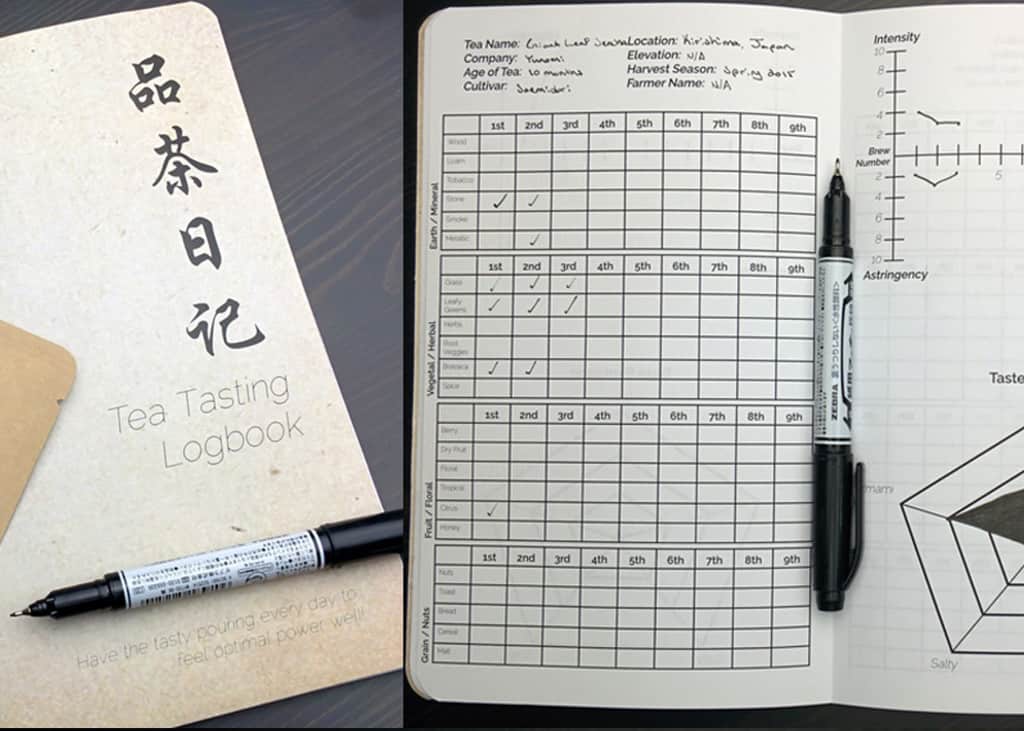 品
茶
日
记
Tea Tasting
Logbook
Have the tasty pouring every day to
feel optimal power well!
Tea Name: Giant Leaf Sencha Location: Kirishima, Japan
Company: Yunomi Elevation: N/A
Age of Tea: 10 months Harvest Season: Spring 2015
Cultivar: Saemidori Farmer Name: N/A
Earth / Mineral
1st 2nd 3rd 4th 5th 6th 7th 8th 9th
Wood
Loam
Tobacco
Stone ✓ ✓
Smoke
Metallic ✓
Vegetal / Herbal
1st 2nd 3rd 4th 5th 6th 7th 8th 9th
Grass ✓ ✓ ✓
Leafy
Greens ✓ ✓ ✓
Herbs
Root
Veggies
Brassica ✓ ✓
Spice
Fruit / Floral
1st 2nd 3rd 4th 5th 6th 7th 8th 9th
Berry
Dry Fruit
Floral
Tropical
Citrus ✓
Honey
Grain / Nuts
1st 2nd 3rd 4th 5th 6th 7th 8th 9th
Nuts
Toast
Bread
Cereal
Malt
ZEBRA
Intensity
10
8
6
4
2
Brew
Number
5
2
4
6
8
10
Astringency
Taste
mami
Salty